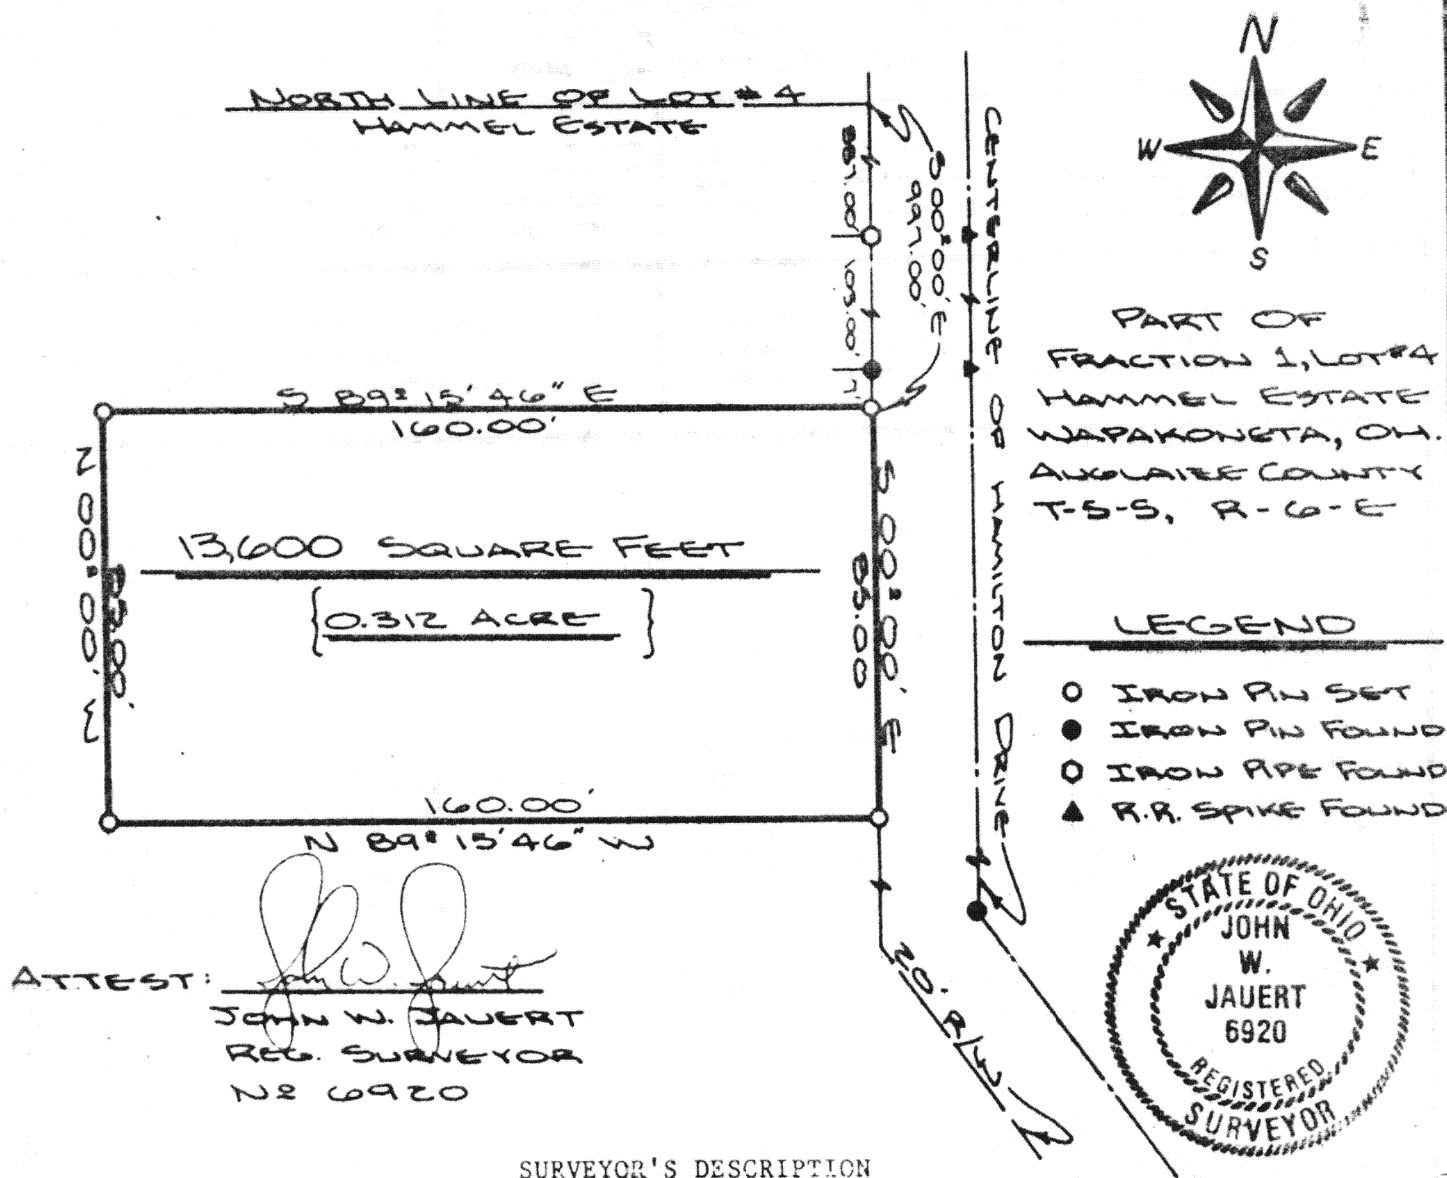 N
W E
S
NORTH LINE OF LOT #4
HAMMEL ESTATE
887.00'
103.00'
7'
S 00° 00' E
997.00'
CENTERLINE OF HAMILTON DRIVE
PART OF
FRACTION 1, LOT #4
HAMMEL ESTATE
WAPAKONETA, OH.
AUGLAIZE COUNTY
T-5-S, R-6-E
S 89° 15' 46" E
160.00'
N 00° 00' W
S 00° 00' E
85.00
13,600 SQUARE FEET
{0.312 ACRE}
160.00'
N 89° 15' 46" W
LEGEND
IRON PIN SET
IRON PIN FOUND
IRON PIPE FOUND
R.R. SPIKE FOUND
20' R/W
ATTEST: John W. Jauert
JOHN W. JAUERT
REG. SURVEYOR
Nº 6920
STATE OF OHIO
JOHN
W.
JAUERT
6920
REGISTERED
SURVEYOR
SURVEYOR'S DESCRIPTION